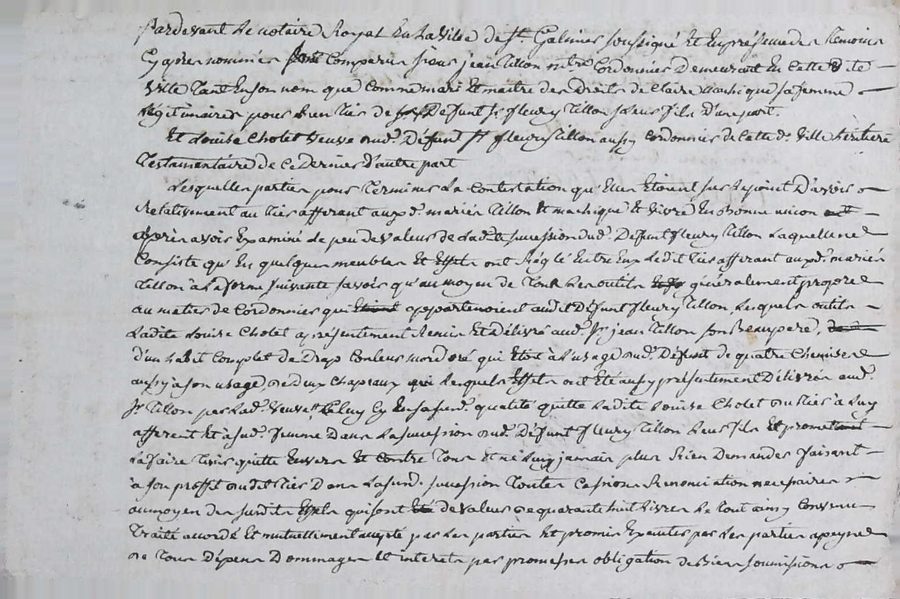 Pardevant le notaire Royal En la Ville de St. Galmier soussigné Et En présence des témoins
Cy après nommés comparus sieur jean tillon mtre Cordonnier Demeurant En Cette dite
Ville tant En son nom que Comme mari Et maitre des Droits de Claire machique sa femme
légitimaires pour Un tiers de Defunt Sr. fleury tillon Leur fils D'une part.
Et Louise Cholet Veuve dud. Défunt Sr. fleury tillon aussy Cordonnier de Cette de. Ville héritiere
testamentaire de Ce Dernier d'autre part
Lesquelles parties pour terminer La Contestation qu'Elles Etoient sur le point D'avoir
Relativement au tiers afferant auxd. mariés tillon Et machique Et Vivre En bonne union
après avoir Examiné Le peu de Valeur de lad. succession dud. Defunt fleury tillon Laquelle ne
Consiste qu'En quelques meubles Et Effets ont Réglé Entre Eux Ledit tiers afferant auxd. mariés
tillon à La forme suivante savoir qu'au moyen de tous Les outils généralement propres
au metier de Cordonnier qui appartenoient audit Défunt fleury tillon Lesquels outils
Ladite Louise Cholet a présentement Remis Et Délivré aud. Sr. jean tillon son Beaupere,
d'un habit Complet de Drap Couleur mordoré qui Etoit à L'usage dud. Défunt de quatre Chemises
aussy à son usage de deux Chapeaux Lesquels Effets ont Eté aussy présentement Délivrés aud.
Sr. tillon par Lad. Veuve Celuy Cy En sa susd. qualité quitte Ladite Louise Cholet du tiers à Luy
afferent Et à sad. femme Dans La succession dud. Défunt fleury tillon Leur fils Et promet
La faire tenir quitte Envers Et Contre tous Et ne Luy jamais plus Rien Demander faisant
à son proffit dudit tiers Dans La susd. succession toutes Cessions Renonciation necessaires
au moyen des susdits Effets qui sont de Valeur de quarante huit Livres Le tout ainsy Convenu
traité accordé Et mutuellement accepté par Les parties Et promis Executer par Les parties a peyne
de tous Dépens Dommages Et interets par promesses obligation de Biens soumissions